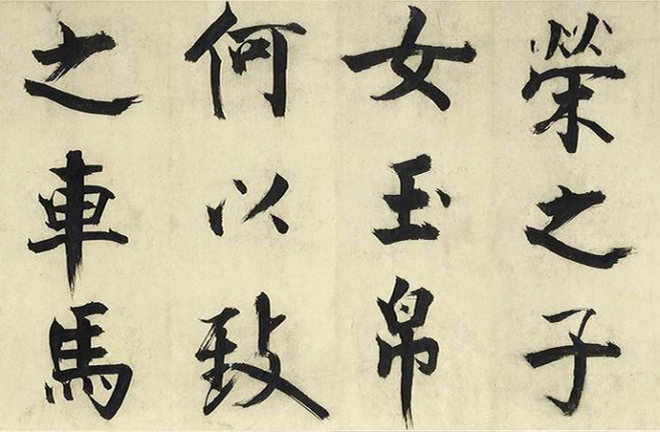 榮之子
女玉帛
何以致
之車馬